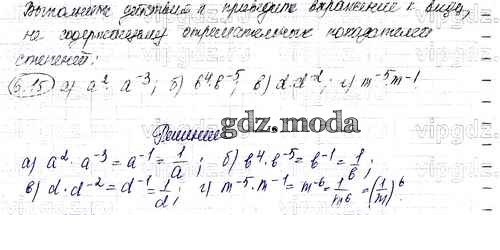 Выполните действия и приведите выражение к виду,
не содержащему отрицательных показателей
степеней:
5.15 а) a². a⁻³; б) b⁴.b⁻⁵; в) d.d⁻²; г) m⁻⁵.m⁻¹
Решение
gdz.moda
а) a² · a⁻³ = a⁻¹ = 1/a ; б) b⁴ · b⁻⁵ = b⁻¹ = 1/b ;
в) d · d⁻² = d⁻¹ = 1/d ; г) m⁻⁵ · m⁻¹ = m⁻⁶ = 1/m⁶ = (1/m)⁶.